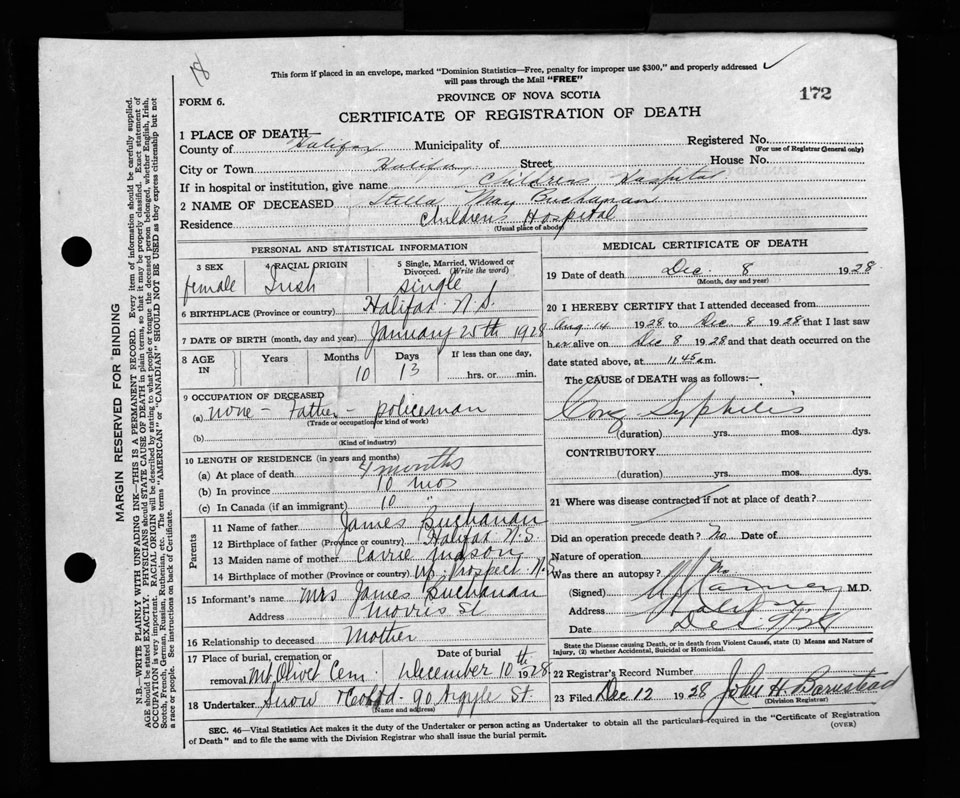 18
This form if placed in an envelope, marked "Dominion Statistics—Free, penalty for improper use $300," and properly addressed
will pass through the Mail "FREE"
172
PROVINCE OF NOVA SCOTIA
FORM 6.
CERTIFICATE OF REGISTRATION OF DEATH
1 PLACE OF DEATH—
County of Halifax Municipality of Registered No.
(For use of Registrar General only)
City or Town Halifax Street House No.
If in hospital or institution, give name Children Hospital
2 NAME OF DECEASED Stella May Buchanan
Residence Children's Hospital
(Usual place of abode)
PERSONAL AND STATISTICAL INFORMATION
3 SEX 4 RACIAL ORIGIN 5 Single, Married, Widowed or Divorced. (Write the word)
female Irish single
6 BIRTHPLACE (Province or country) Halifax N.S.
7 DATE OF BIRTH (month, day and year) January 25th 1928
8 AGE IN Years Months Days If less than one day,
10 13 hrs. or min.
9 OCCUPATION OF DECEASED
(a) none - Father - policeman
(Trade or occupation or kind of work)
(b)
(Kind of industry)
10 LENGTH OF RESIDENCE (in years and months)
(a) At place of death 4 months
(b) In province 10 mos
(c) In Canada (if an immigrant) 10 "
Parents
11 Name of father James Buchanan
12 Birthplace of father (Province or country) Halifax N.S.
13 Maiden name of mother Carrie Mason
14 Birthplace of mother (Province or country) Up. Prospect N.S
15 Informant's name Mrs James Buchanan
Address Morris St
16 Relationship to deceased Mother
17 Place of burial, cremation or removal Date of burial
Mt Olivet Cem. December 10th 1928
18 Undertaker Snow & Co Ltd. 90 Argyle St.
(Name and address)
MEDICAL CERTIFICATE OF DEATH
19 Date of death Dec. 8 1928
(Month, day and year)
20 I HEREBY CERTIFY that I attended deceased from
Aug. 14 1928 to Dec. 8 1928 that I last saw
her alive on Dec 8 1928 and that death occurred on the
date stated above, at 11.45 a.m.
The CAUSE OF DEATH was as follows:—
Cong Syphilis
(duration) yrs. mos. dys.
CONTRIBUTORY
(duration) yrs. mos. dys.
21 Where was disease contracted if not at place of death?
Did an operation precede death? No Date of
Nature of operation
Was there an autopsy? No
(Signed) M.D.
Address Halifax
Date Dec.
State the Disease causing Death, or in death from Violent Causes, state (1) Means and Nature of
Injury, (2) whether Accidental, Suicidal or Homicidal.
22 Registrar's Record Number
23 Filed Dec 12 1928 John H. Barnstead
(Division Registrar)
SEC. 46—Vital Statistics Act makes it the duty of the Undertaker or person acting as Undertaker to obtain all the particulars required in the "Certificate of Registration
of Death" and to file the same with the Division Registrar who shall issue the burial permit.
(OVER)
MARGIN RESERVED FOR BINDING
N.B.—WRITE PLAINLY WITH UNFADING INK—THIS IS A PERMANENT RECORD. Every item of information should be carefully supplied.
AGE should be stated EXACTLY. PHYSICIANS should STATE CAUSE OF DEATH in plain terms, so that it may be properly classified. Exact statement of
OCCUPATION is very important. RACIAL ORIGIN will be described by stating to what people or tongue the deceased person belonged, whether English, Irish,
Scotch, French, German, Russian, Ruthenian, etc. The terms "AMERICAN" or "CANADIAN" SHOULD NOT BE USED as they express citizenship but not
a race or people. See instructions on back of Certificate.